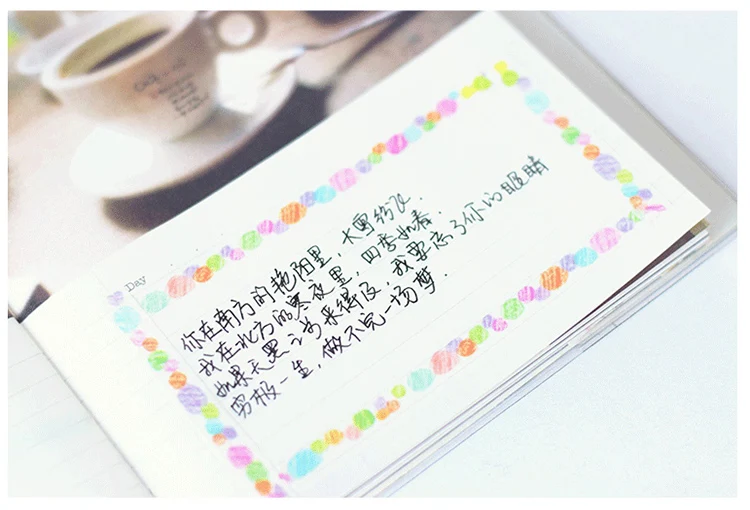 Day
你在南方的艳阳里，大雪纷飞.
我在北方的寒夜里，四季如春.
如果天黑之前来得及，我要忘了你的眼睛
穷极一生，做不完一场梦.